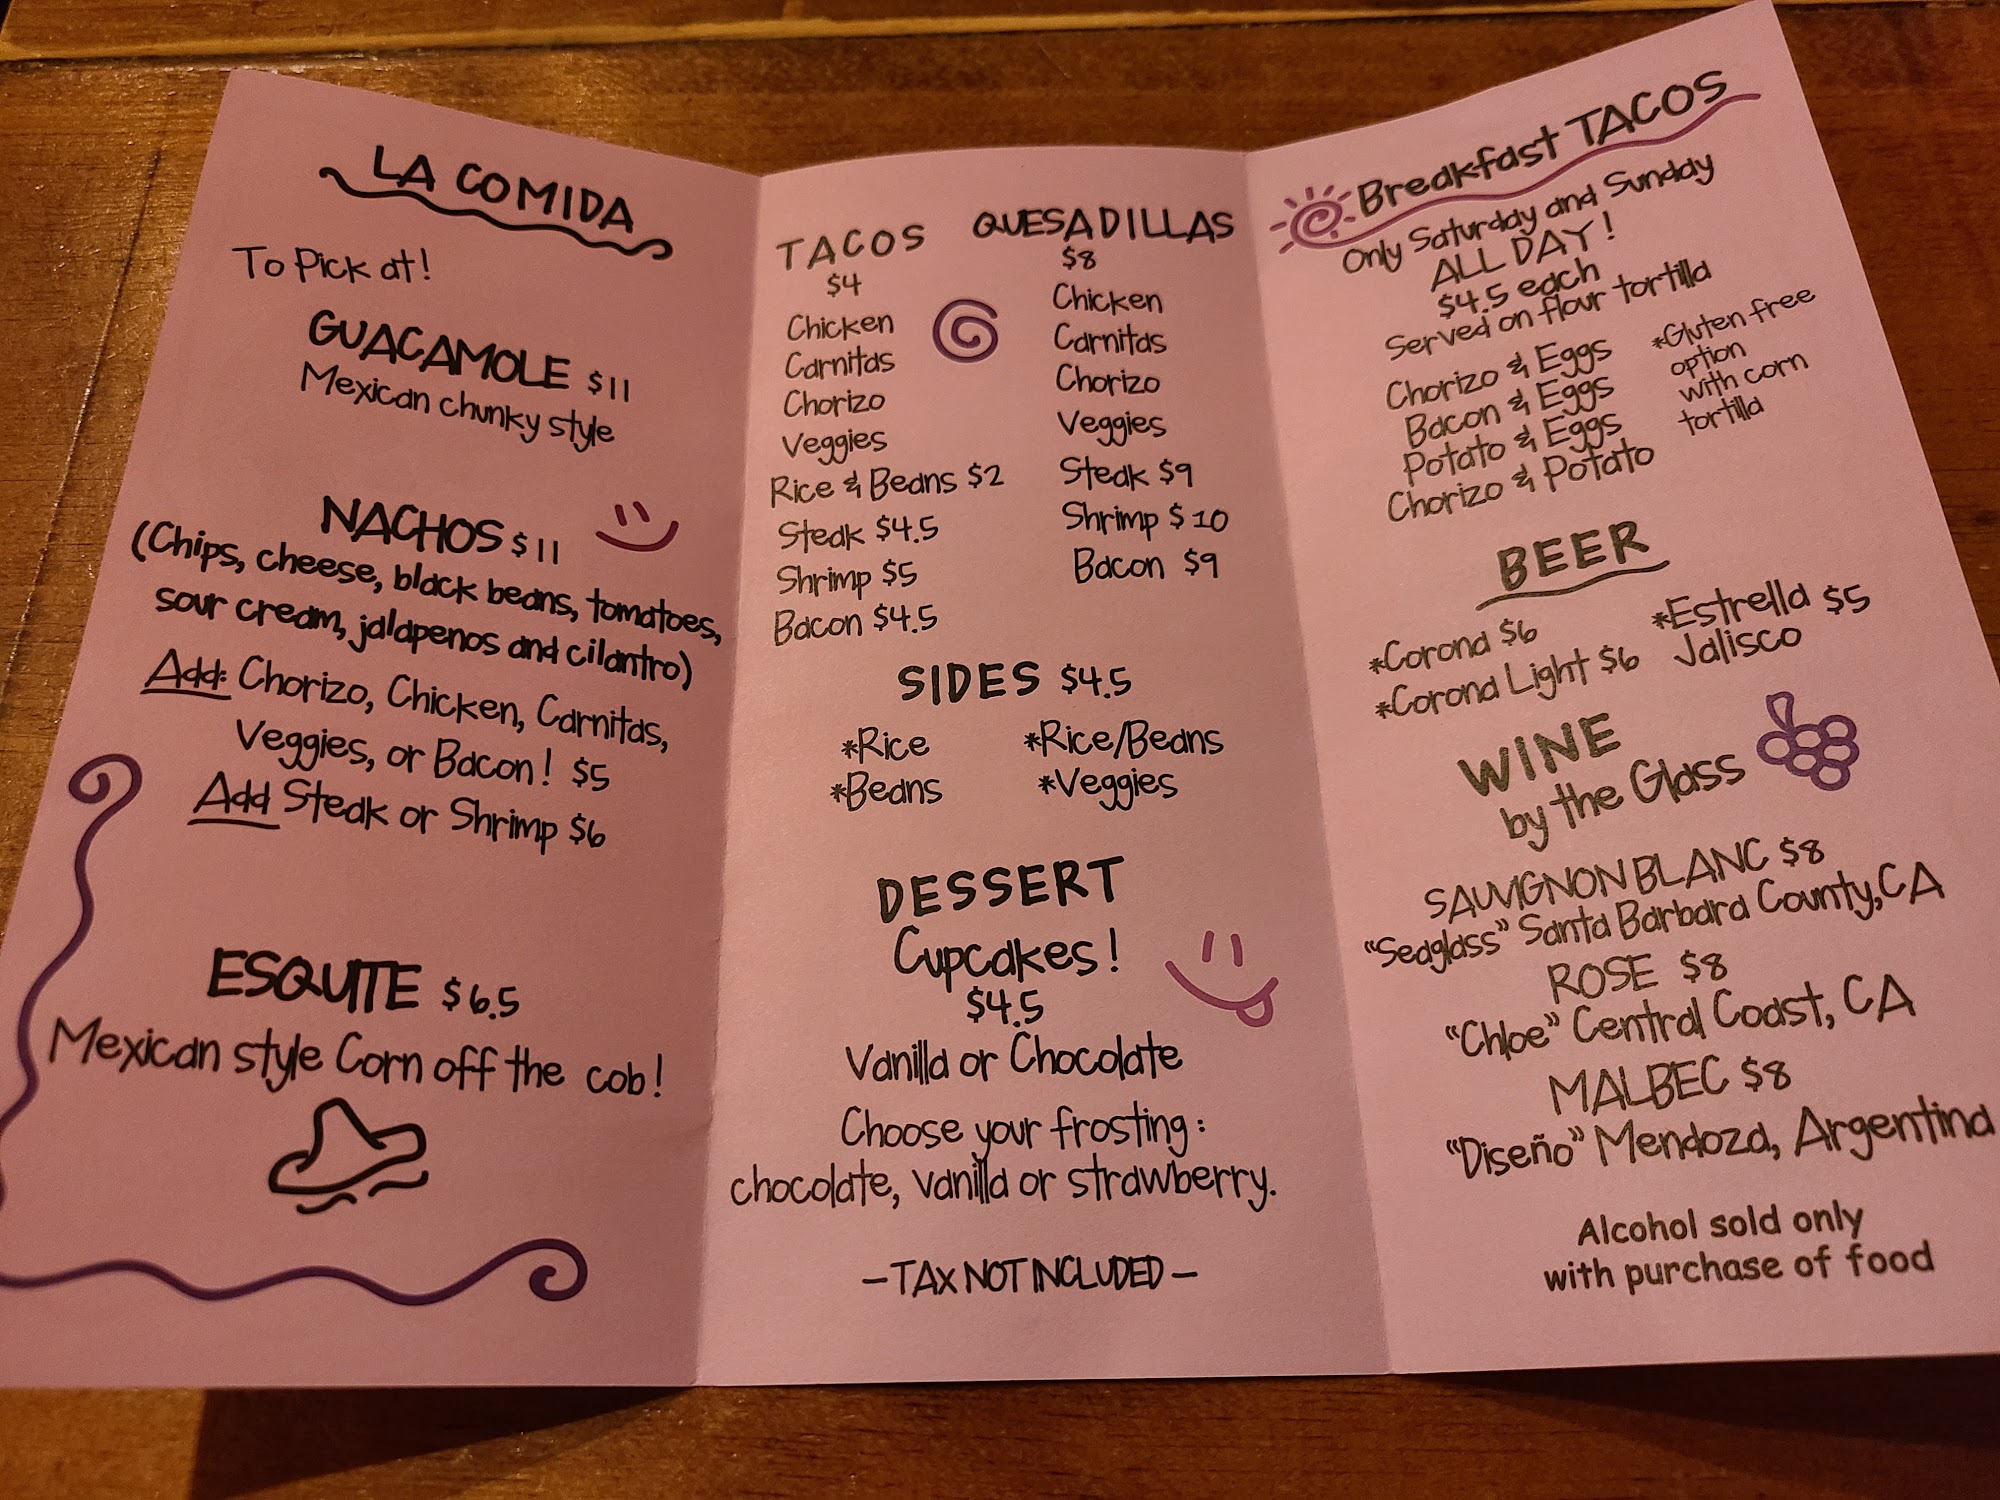 LA COMIDA
To Pick at!
GUACAMOLE $11
Mexican chunky style
NACHOS $11
(Chips, cheese, black beans, tomatoes,
sour cream, jalapenos and cilantro)
Add: Chorizo, Chicken, Carnitas,
Veggies, or Bacon! $5
Add Steak or Shrimp $6
ESQUITE $6.5
Mexican style Corn off the cob!
TACOS
$4
Chicken
Carnitas
Chorizo
Veggies
Rice & Beans $2
Steak $4.5
Shrimp $5
Bacon $4.5
QUESADILLAS
$8
Chicken
Carnitas
Chorizo
Veggies
Steak $9
Shrimp $10
Bacon $9
SIDES $4.5
*Rice
*Beans
*Rice/Beans
*Veggies
DESSERT
Cupcakes!
$4.5
Vanilla or Chocolate
Choose your frosting:
chocolate, vanilla or strawberry.
- TAX NOT INCLUDED -
Breakfast TACOS
Only Saturday and Sunday
ALL DAY!
$4.5 each
Served on flour tortilla
Chorizo & Eggs
Bacon & Eggs
Potato & Eggs
Chorizo & Potato
*Gluten free
option
with corn
tortilla
BEER
*Corona $6
*Corona Light $6
*Estrella $5
Jalisco
WINE
by the Glass
SAUVIGNON BLANC $8
"Seaglass" Santa Barbara County, CA
ROSE $8
"Chloe" Central Coast, CA
MALBEC $8
"Diseño" Mendoza, Argentina
Alcohol sold only
with purchase of food